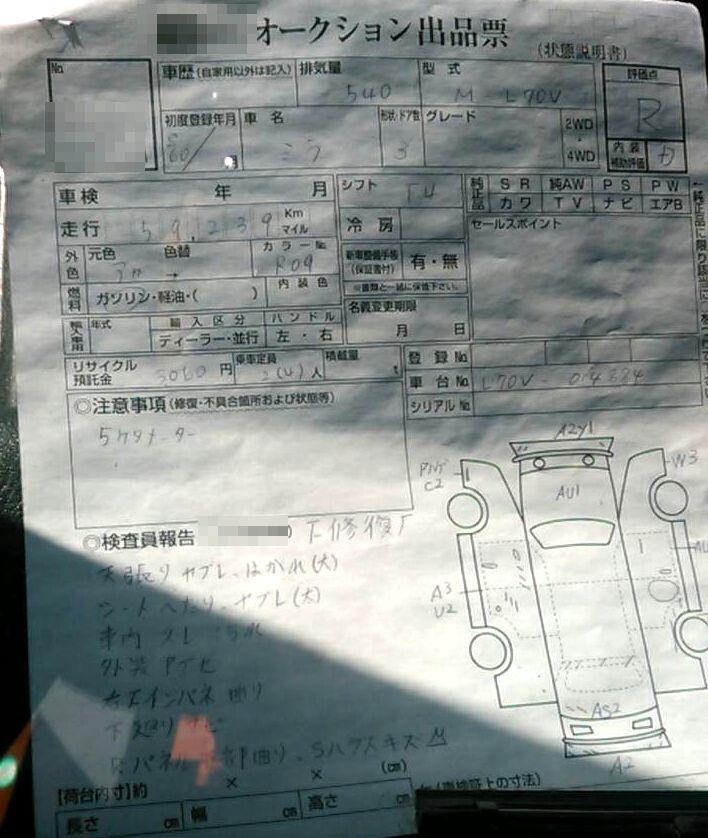 オークション出品票
(状態説明書)
No
車歴(自家用以外は記入)
排気量
540
型式
M-L70V
評価点
R
初度登録年月
S60/
車名
ミラ
形状・ドア数
3
グレード
2WD
・
4WD
内装補助評価
D
車検 年 月
シフト
純正品
SR 純AW PS PW
カワ TV ナビ エアB
走行
59,239
Km
マイル
冷房
セールスポイント
外色
元色
アカ
色替
→
カラーNo.
R09
新車整備手帳(保証書付)
有・無
※書類と一緒に保管下さい。
燃料
ガソリン・軽油・( )
内装色
名義変更期限
月 日
輸入車用
年式
輸入区分
ディーラー・並行
ハンドル
左・右
リサイクル預託金
円
乗車定員
2(4)人
積載量
t
登録No.
車台No.
L70V-
シリアルNo.
◎注意事項(修復・不具合箇所および状態等)
5ケタメーター
◎検査員報告
下修復有
天張りヤブレ、はがれ(大)
シートへたり、ヤブレ(大)
車内スレ
右インパネ
下廻りサビ
A2Y1
AU1
C2
W3
A3
U2
AS2
A2
【荷台内寸】約 × × (cm)
(車検証上の寸法)
長さ cm 幅 cm 高さ cm